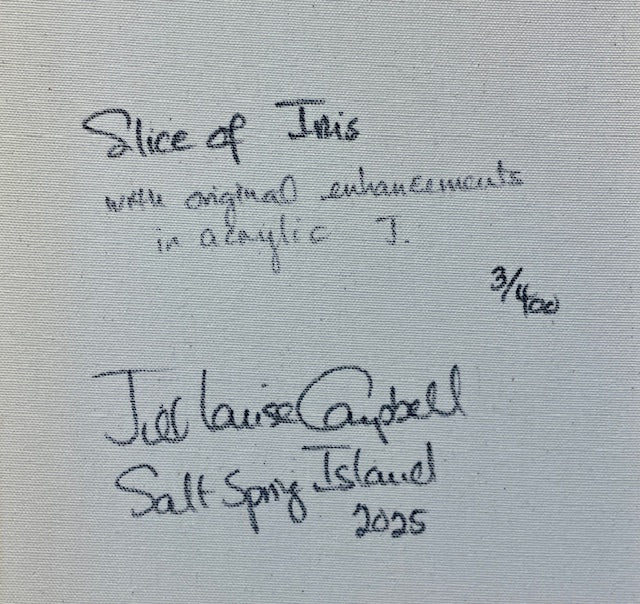 Slice of Iris
with original enhancements
in acrylic J.
3/400
Jill Louise Campbell
Salt Spring Island
2025